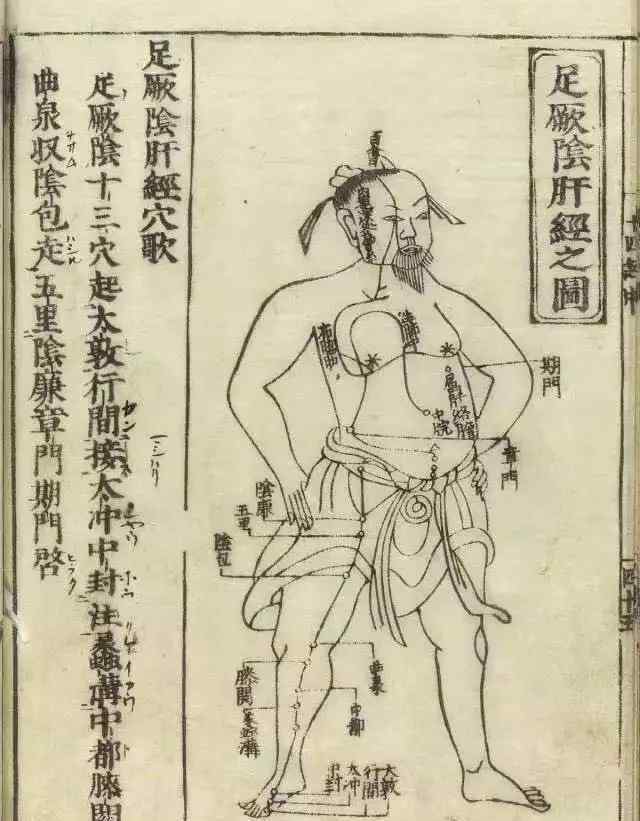 足厥陰肝經之圖
百會
期門
章門
屬肝絡膽
中脘
陰廉
五里
陰包
曲泉
膝関
中都
蠡溝
中封
太冲
行間
大敦
足厥陰肝經穴歌
足厥陰十三穴起太敦行間接太冲中封注蠡溝中都膝関
曲泉収陰包走五里陰廉章門期門啓